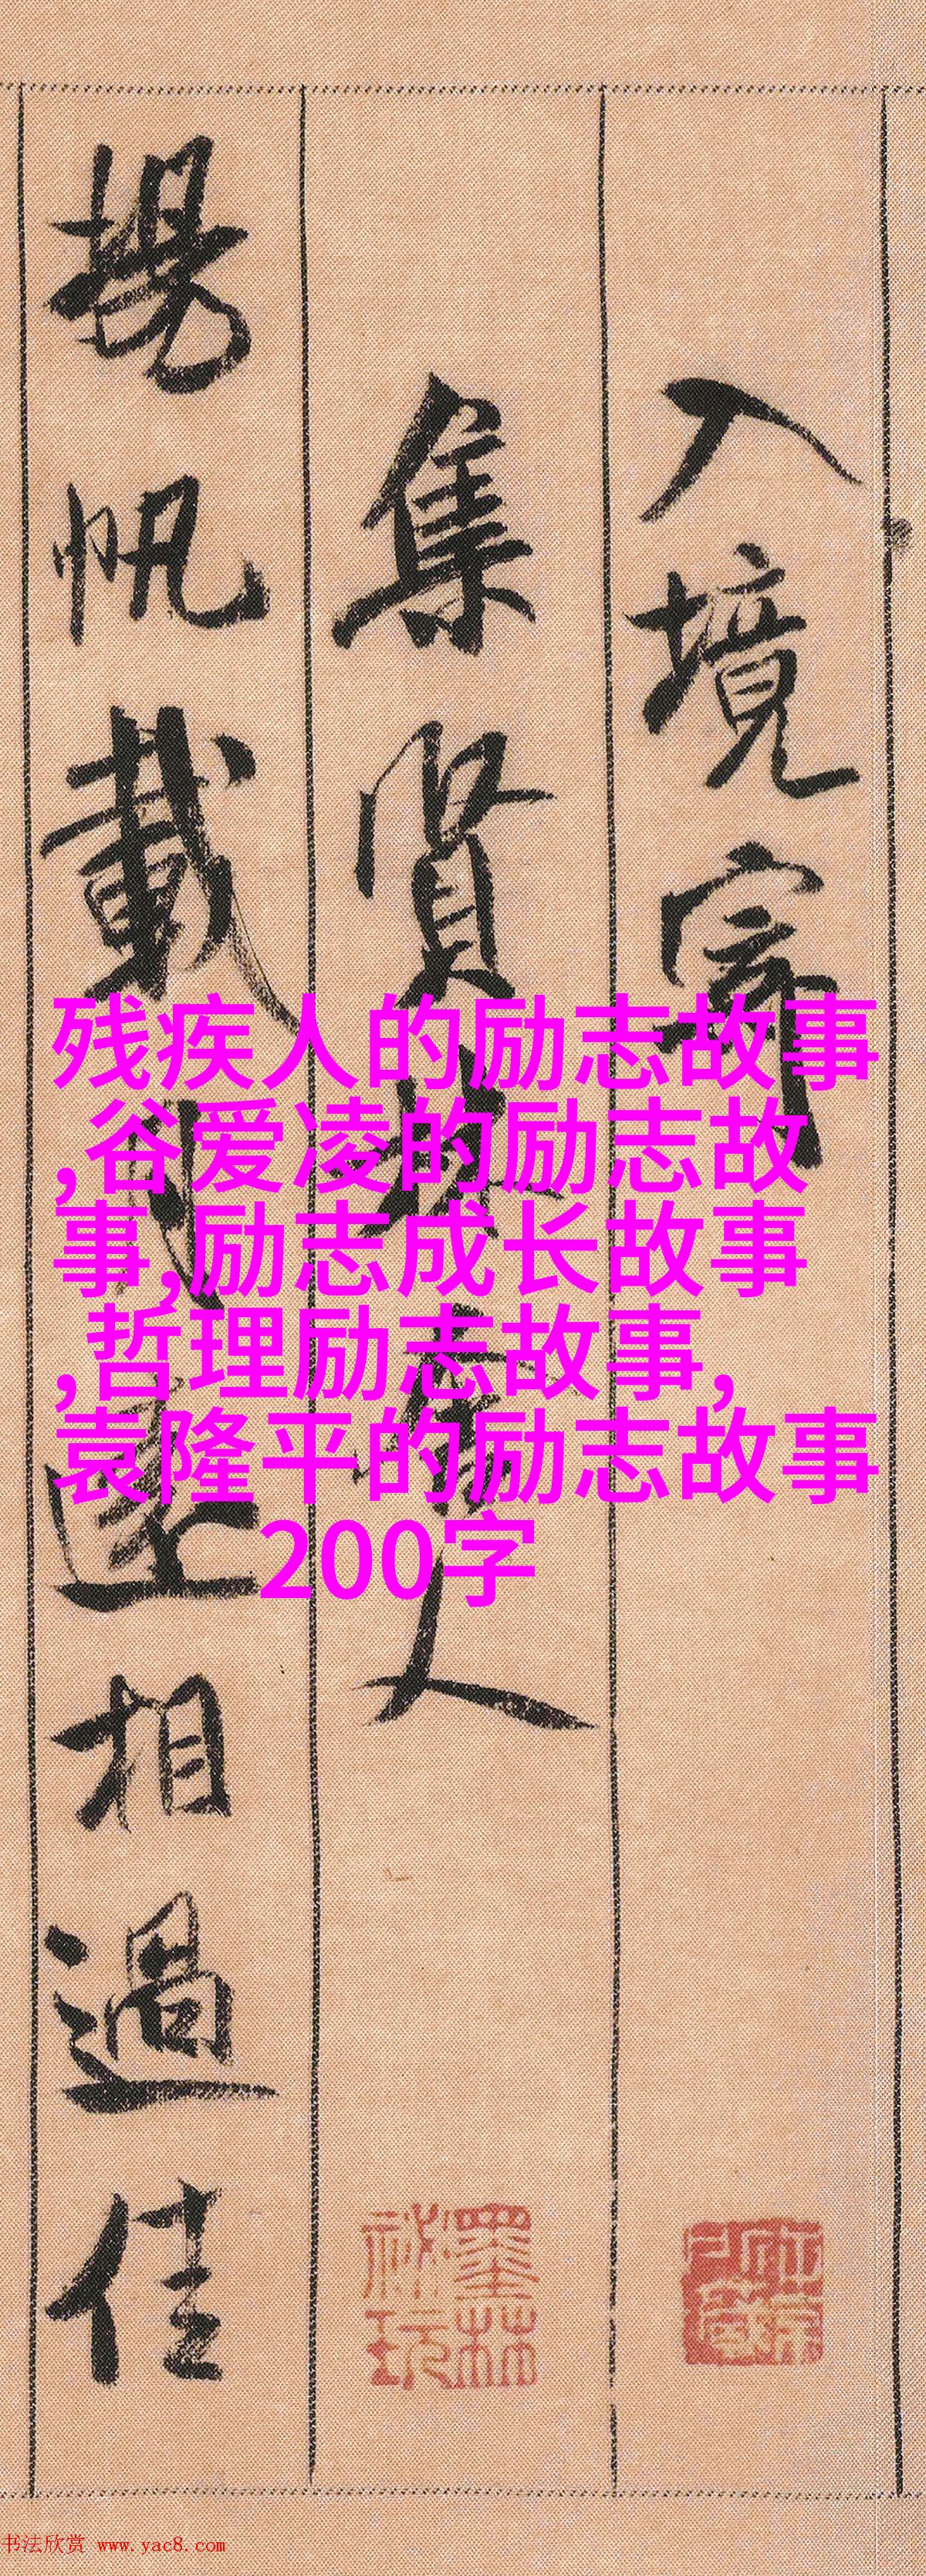 入境寄
集賢林舍人
揚帆載月遠相過佳
残疾人的励志故事
,谷爱凌的励志故
事,励志成长故事
,哲理励志故事,
袁隆平的励志故事
200字
墨林
祕玩
书法欣赏 www.yac8.com